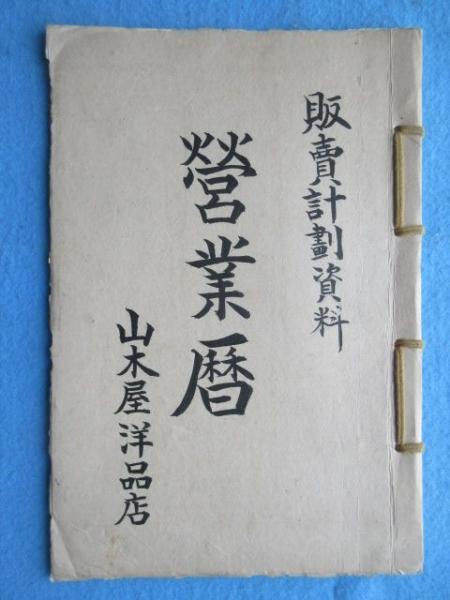 販賣計劃資料
營業暦
山木屋洋品店